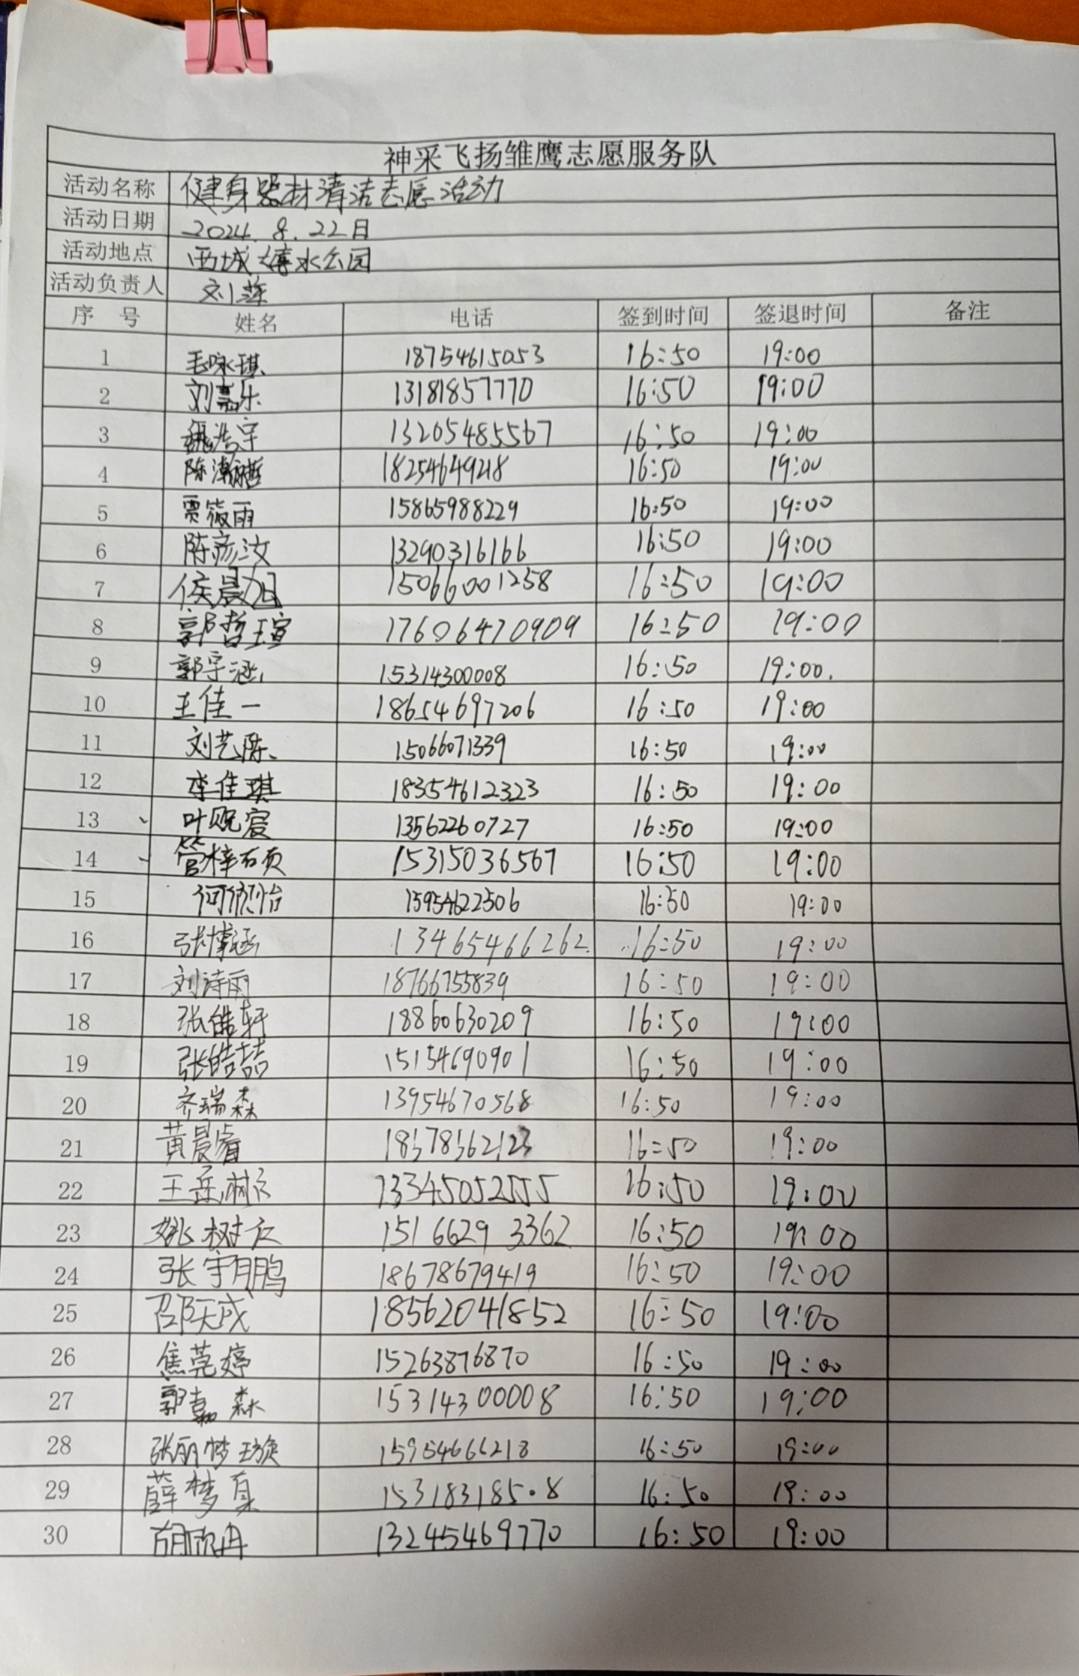 神采飞扬雏鹰志愿服务队
活动名称 健身器材清洁志愿活动
活动日期 2024.8.22日
活动地点 西城 水公园
活动负责人 刘
序号 姓名 电话 签到时间 签退时间 备注
1 毛咏琪 18754615053 16:50 19:00
2 刘嘉乐 13181857770 16:50 19:00
3 魏浩宇 13205485567 16:50 19:00
4 陈瀚哲 18254649218 16:50 19:00
5 贾筱雨 15865988229 16:50 19:00
6 陈彦汶 13290316166 16:50 19:00
7 侯晨旭 15066001258 16:50 19:00
8 郭哲瑄 17606470909 16:50 19:00
9 郭宇涵 15314300008 16:50 19:00.
10 王佳一 18654697206 16:50 19:00
11 刘艺陈 15066071339 16:50 19:00
12 李佳琪 18354612323 16:50 19:00
13 叶贶宸 13562260727 16:50 19:00
14 管梓硕 15315036567 16:50 19:00
15 何依怡 15954622506 16:50 19:00
16 张博涵 13465466262 16:50 19:00
17 刘诗雨 18766755839 16:50 19:00
18 张皓轩 18860630209 16:50 19:00
19 张皓喆 15154690901 16:50 19:00
20 齐瑞森 13954670568 16:50 19:00
21 黄晨睿 16:50 19:00
22 王岳 13345052555 16:50 19:00
23 姚树 15166293362 16:50 19:00
24 张宇鹏 18678679419 16:50 19:00
25 邵天成 18562041852 16:50 19:00
26 焦莞婷 15263876870 16:50 19:00
27 郭嘉森 15314300008 16:50 19:00
28 张丽梦璇 15954666218 16:50 19:00
29 薛梦真 16:50 19:00
30 胡欣冉 13245469770 16:50 19:00